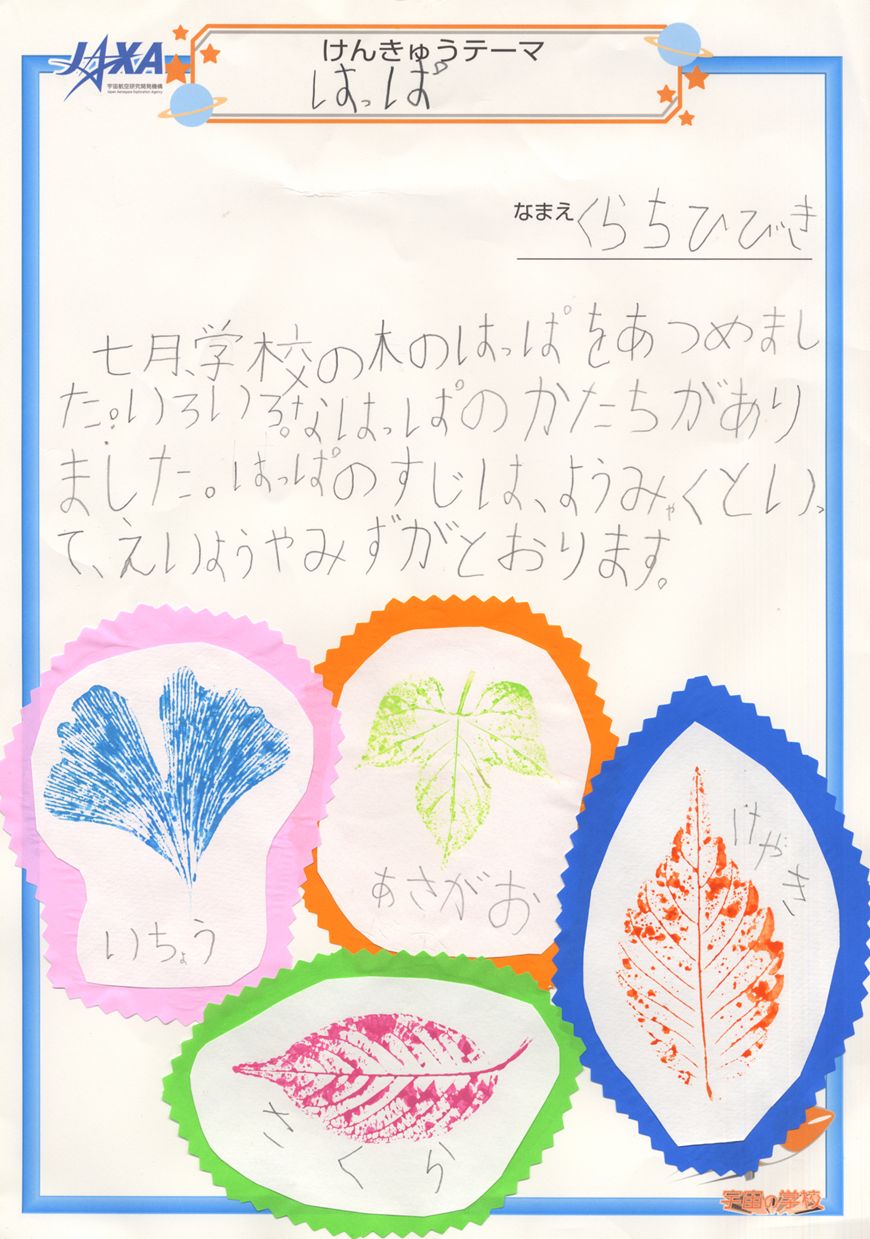 JAXA
宇宙航空研究開発機構
Japan Aerospace Exploration Agency
けんきゅうテーマ
はっぱ
なまえ くらちひびき
七月、学校の木のはっぱをあつめまし
た。いろいろなはっぱのかたちがあり
ました。はっぱのすじは、ようみゃくといっ
て、えいようやみずがとおります。
いちょう
あさがお
けやき
さくら
宇宙の学校